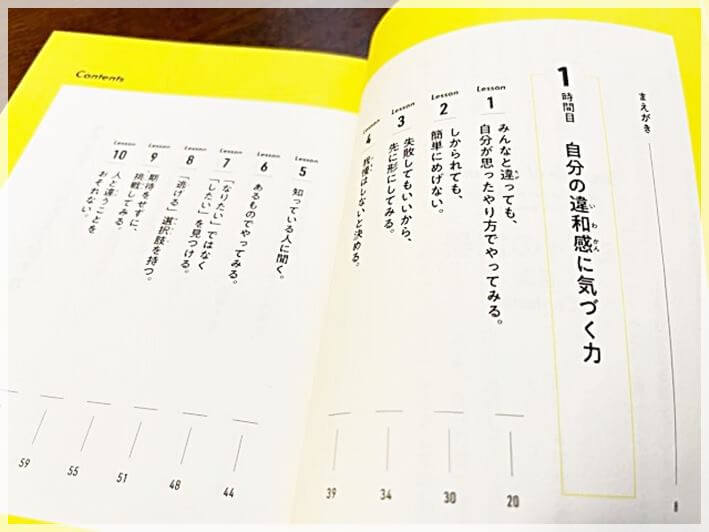 まえがき
8
1時間目 自分の違和感に気づく力
いわかん
Lesson
1
みんなと違っても、
自分が思ったやり方でやってみる。
20
Lesson
2
しかられても、
簡単にめげない。
30
Lesson
3
失敗してもいいから、
先に形にしてみる。
34
Lesson
4
我慢はしないと決める。
39
Contents
Lesson
5
知っている人に聞く。
44
Lesson
6
あるものでやってみる。
48
Lesson
7
「なりたい」ではなく
「したい」を見つける。
51
Lesson
8
「逃げる」選択肢を持つ。
55
Lesson
9
期待をせずに、
挑戦してみる。
59
Lesson
10
人と違うことを
おそれない。